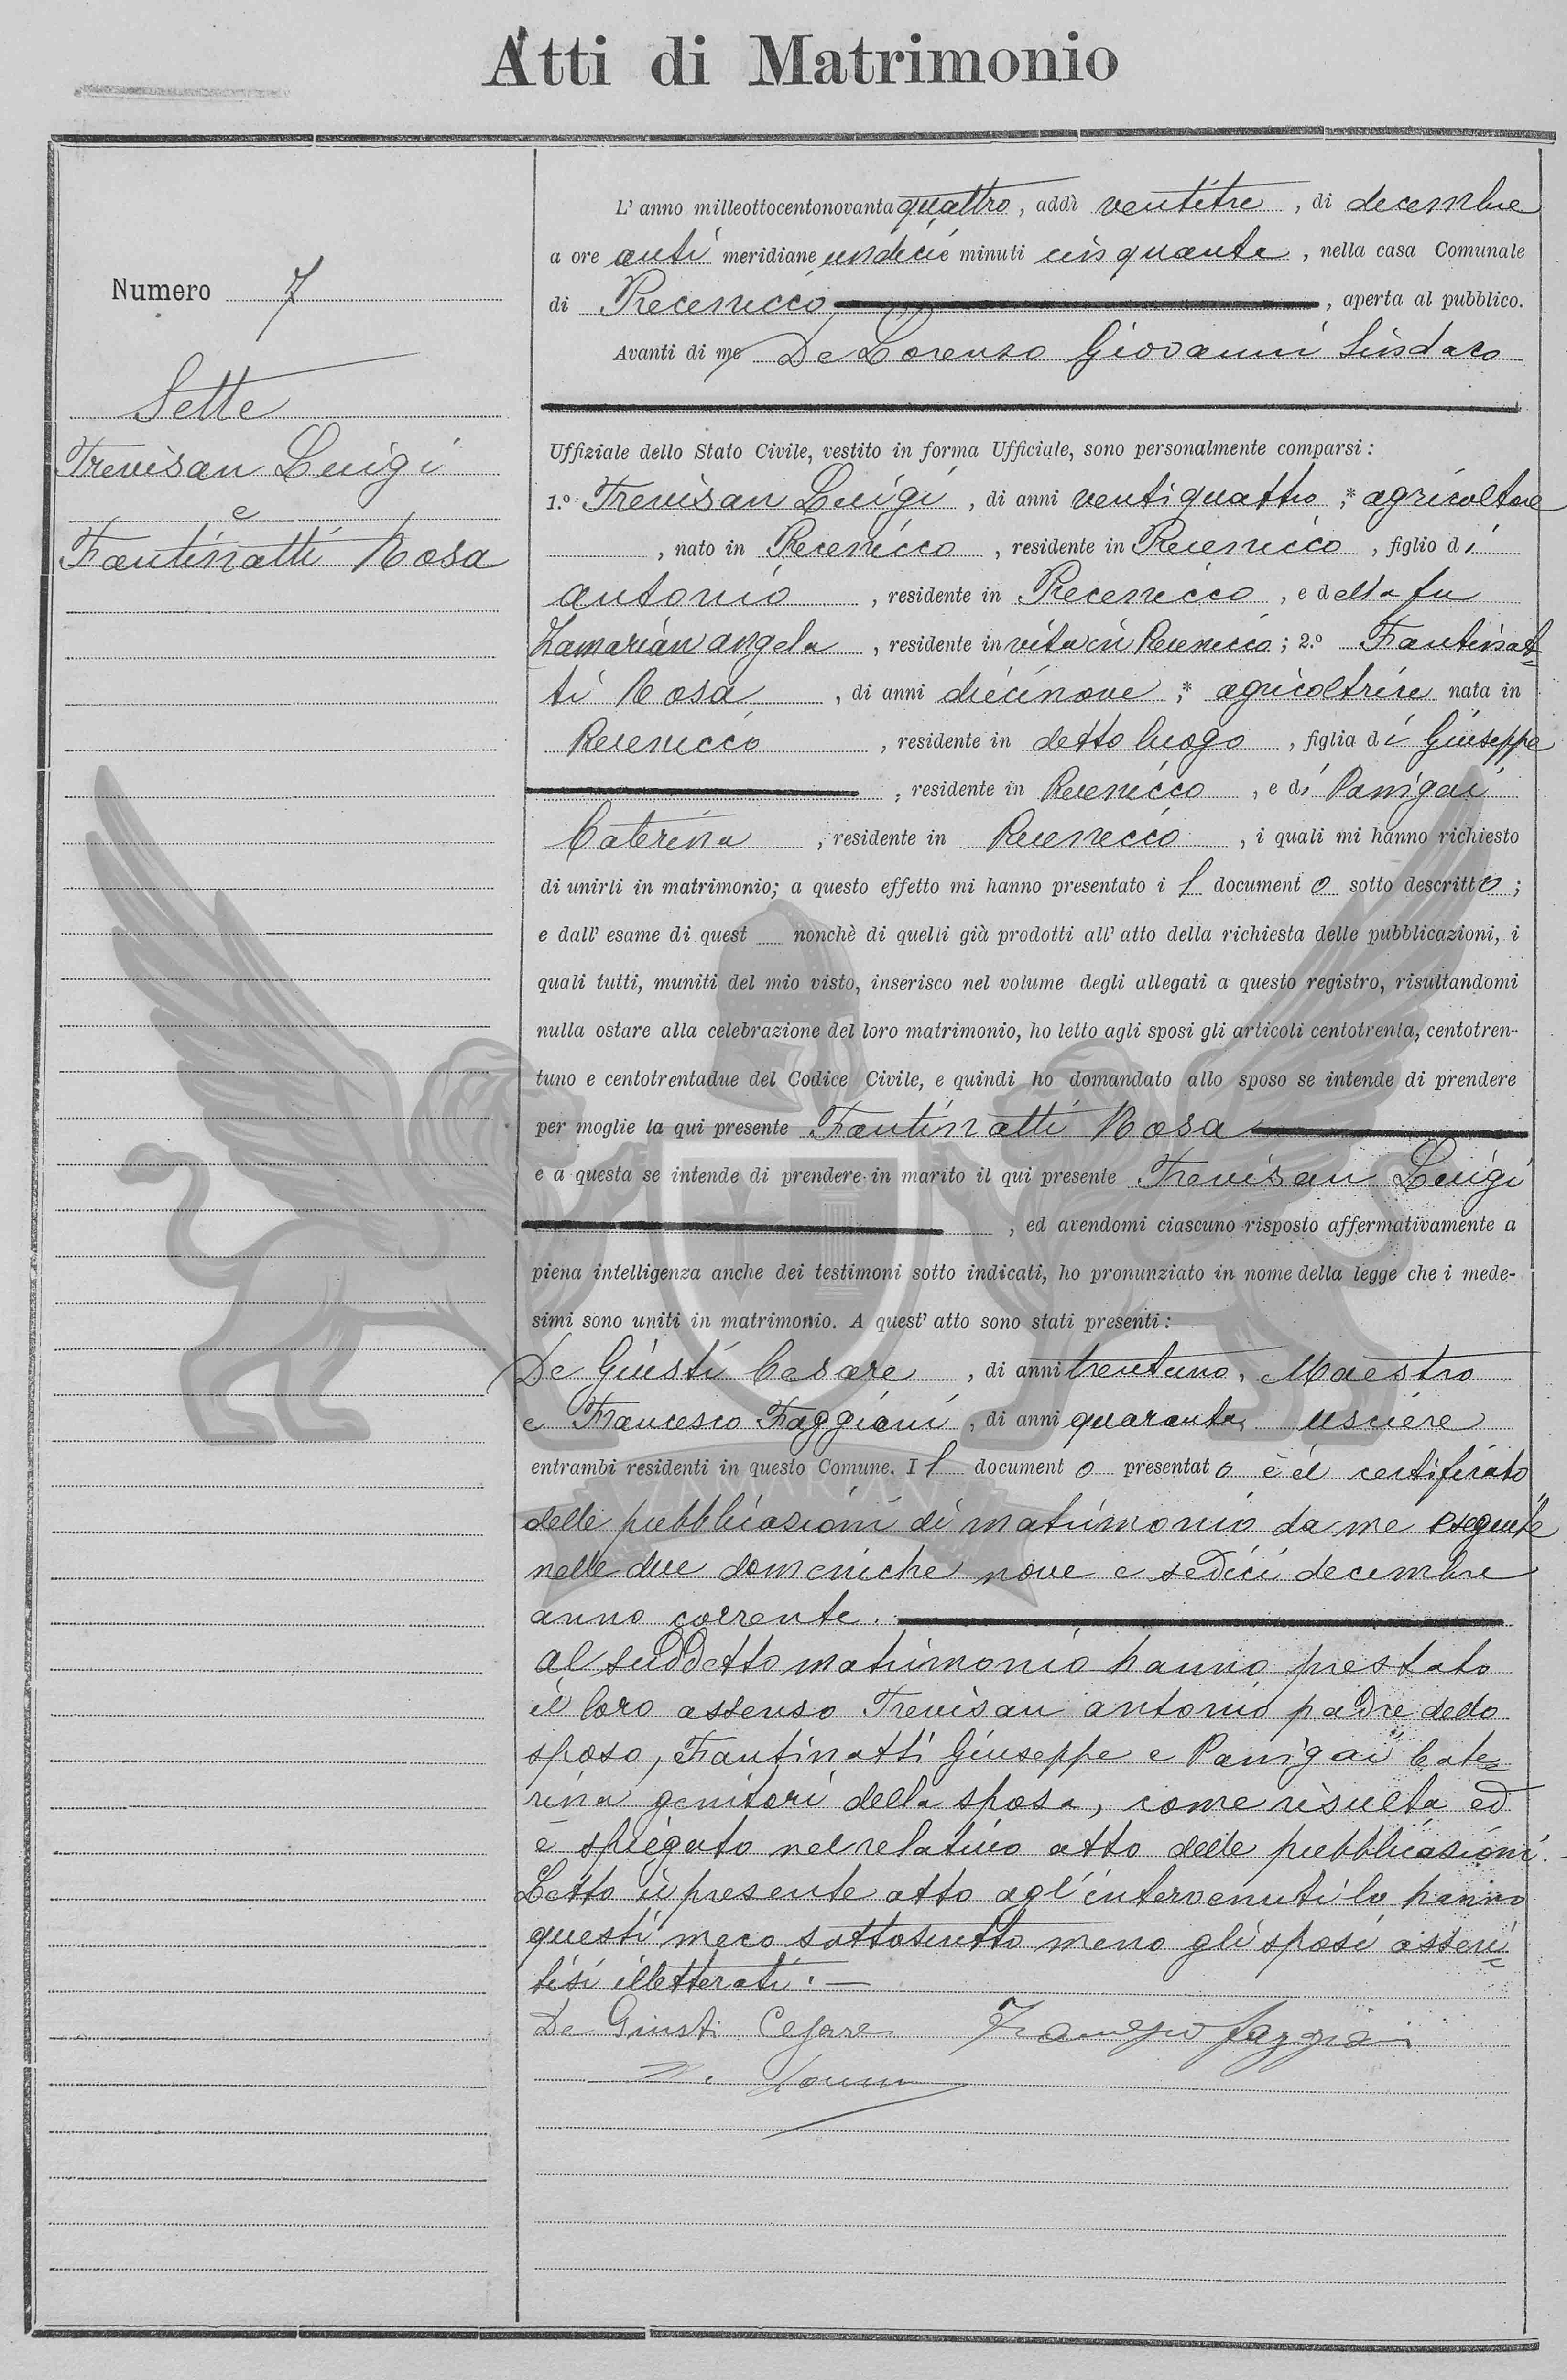 Atti di Matrimonio
Numero 7
Sette
Trevisan Luigi
e
Fantinatti Rosa
L' anno milleottocentonovantaquattro, addì ventitre, di decembre
a ore anti meridiane undici e minuti cinquanta, nella casa Comunale
di Precenicco, aperta al pubblico.
Avanti di me De Lorenzo Giovanni Sindaco
Uffiziale dello Stato Civile, vestito in forma Ufficiale, sono personalmente comparsi:
1.º Trevisan Luigi, di anni ventiquattro,* agricoltore
, nato in Precenicco, residente in Precenicco, figlio di
Antonio, residente in Precenicco, e della fu
Zamarian Angela, residente in vita in Precenicco; 2.º Fantinat-
ti Rosa, di anni diecinove,* agricoltrice nata in
Precenicco, residente in detto luogo, figlia di Giuseppe
, residente in Precenicco, e di Panigai
Caterina, residente in Precenicco, i quali mi hanno richiesto
di unirli in matrimonio; a questo effetto mi hanno presentato il documento sotto descritto;
e dall' esame di quest nonchè di quelli già prodotti all' atto della richiesta delle pubblicazioni, i
quali tutti, muniti del mio visto, inserisco nel volume degli allegati a questo registro, risultandomi
nulla ostare alla celebrazione del loro matrimonio, ho letto agli sposi gli articoli centotrenta, centotren-
tuno e centotrentadue del Codice Civile, e quindi ho domandato allo sposo se intende di prendere
per moglie la qui presente Fantinatti Rosa
e a questa se intende di prendere in marito il qui presente Trevisan Luigi
, ed avendomi ciascuno risposto affermativamente a
piena intelligenza anche dei testimoni sotto indicati, ho pronunziato in nome della legge che i mede-
simi sono uniti in matrimonio. A quest' atto sono stati presenti:
De Giusti Cesare, di anni trentuno, Maestro
e Francesco Faggiani, di anni quaranta, usciere
entrambi residenti in questo Comune. Il documento presentato è il certificato
delle pubblicazioni di matrimonio da me eseguite
nelle due domeniche nove e sedici decembre
anno corrente.
Al suddetto matrimonio hanno prestato
il loro assenso Trevisan Antonio padre dello
sposo, Fantinatti Giuseppe e Panigai Cate=
rina genitori della sposa, come risulta ed
è spiegato nel relativo atto delle pubblicazioni.
Letto il presente atto agl'intervenuti lo hanno
questi meco sottoscritto meno gli sposi asseri=
tisi illetterati. —
De Giusti Cesare Francesco Faggiani